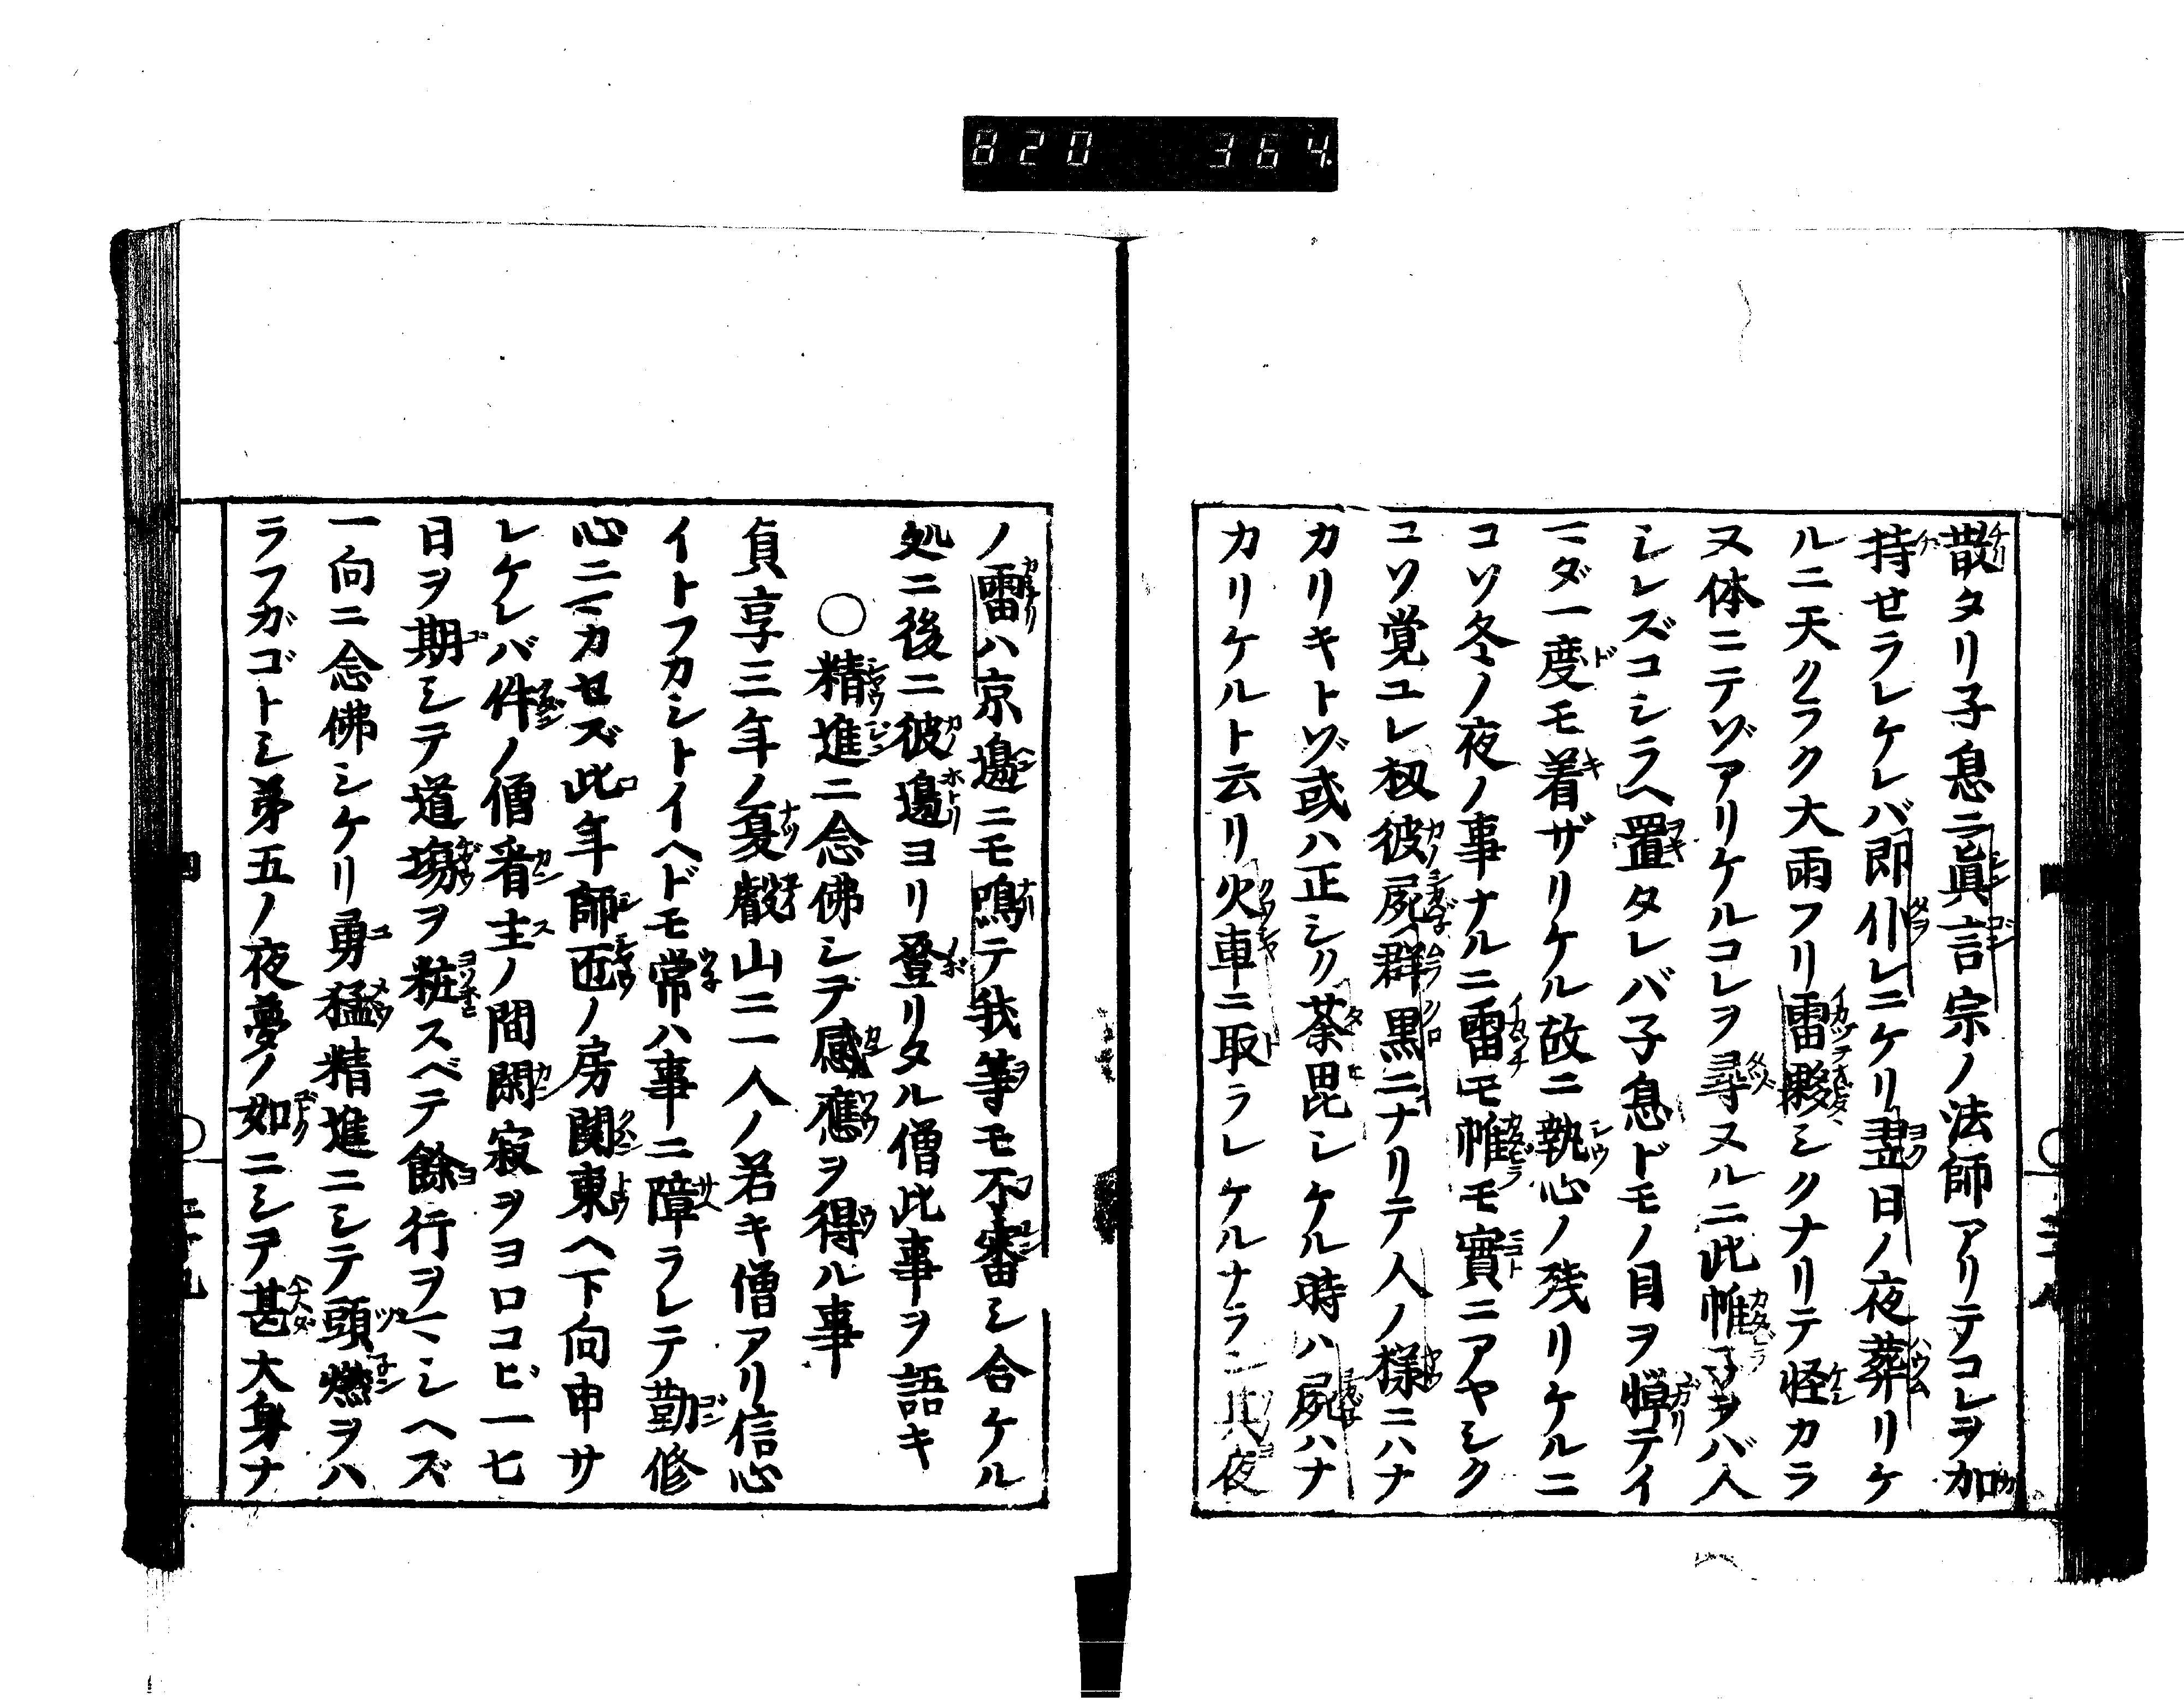 820 364
散タリ子息ニ眞言宗ノ法師アリテコレヲ加
持セラレケレバ即仆レニケリ翌日ノ夜葬リケ
ルニ天クラク大雨フリ雷夥シクナリテ怪カラ
ヌ体ニテゾアリケルコレヲ尋ヌルニ此帷子ヲバ人
シレズコシラヘ置タレバ子息ドモノ目ヲ憚テイ
マダ一度モ着ザリケル故ニ執心ノ残リケルニ
コソ冬ノ夜ノ事ナルニ雷モ帷モ實ニアヤシク
コソ覚ユレ扨彼屍群黒ニナリテ人ノ様ニハナ
カリキトゾ或ハ正シク荼毘シケル時ハ屍ハナ
カリケルト云リ火車ニ取ラレケルナラン其夜
ノ雷ハ京邊ニモ鳴テ我等モ不審シ合ケル
処ニ後ニ彼邊ヨリ登リタル僧此事ヲ語キ
○精進ニ念佛シテ感應ヲ得ル事
貞享三年ノ夏叡山ニ一人ノ若キ僧アリ信心
イトフカシトイヘドモ常ハ事ニ障ラレテ勤修
心ニマカセズ此年師匠ノ房関東ヘ下向申サ
レケレバ件ノ僧看主ノ間閑寂ヲヨロコビ一七
日ヲ期シテ道場ヲ粧スベテ餘行ヲマジヘズ
一向ニ念佛シケリ勇猛精進ニシテ頭燃ヲハ
ラフガゴトシ第五ノ夜夢ノ如ニシテ甚大身ナ